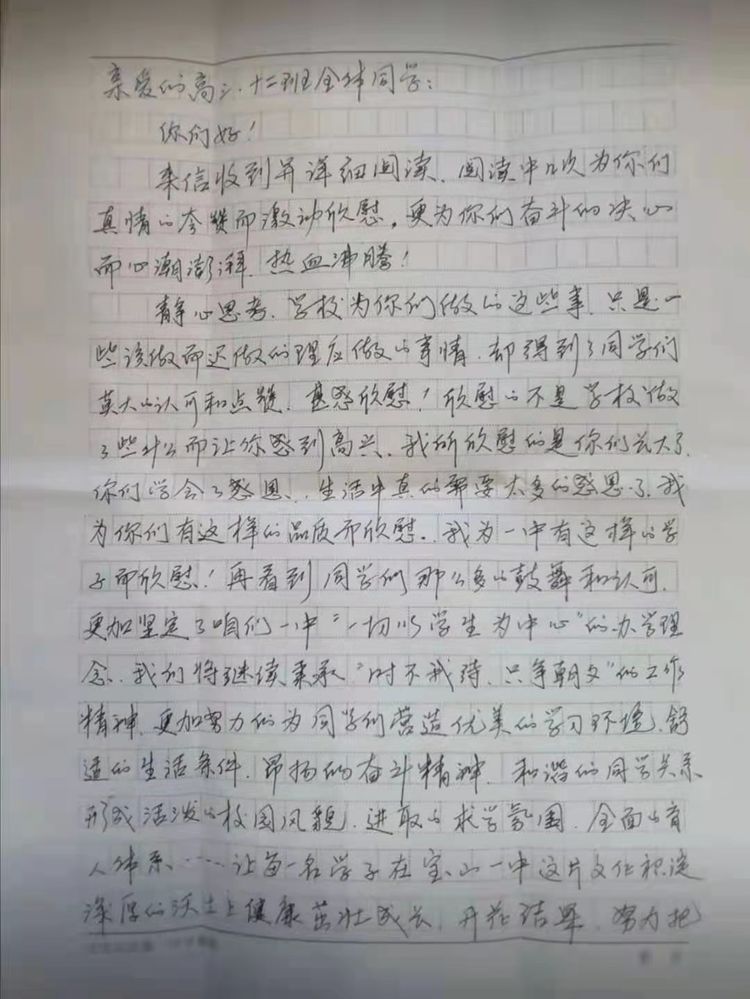 亲爱的高三.十二班全体同学:
你们好!
来信收到并详细阅读、阅读中几次为你们
真情的夸赞而激动欣慰,更为你们奋斗的决心
而心潮澎湃、热血沸腾!
静心思考、学校为你们做的这些事、只是一
些该做而迟做的理应做的事情、却得到了同学们
莫大的认可和点赞、甚感欣慰!欣慰的不是学校做
了些什么而让你感到高兴、我所欣慰的是你们长大了、
你们学会了感恩、生活中真的需要太多的感恩了、我
为你们有这样的品质而欣慰、我为一中有这样的学
子而欣慰!再看到同学们那么多的鼓舞和认可、
更加坚定了咱们一中"一切以学生为中心"的办学理
念、我们将继续秉承"时不我待、只争朝夕"的工作
精神、更加努力的为同学们营造优美的学习环境、舒
适的生活条件、昂扬的奋斗精神、和谐的同学关系
形成活泼的校园风貌、进取的求学氛围、全面的育
人体系……让每一名学子在宝山一中这片文化积淀
深厚的沃土上健康茁壮成长、开花结果、努力把